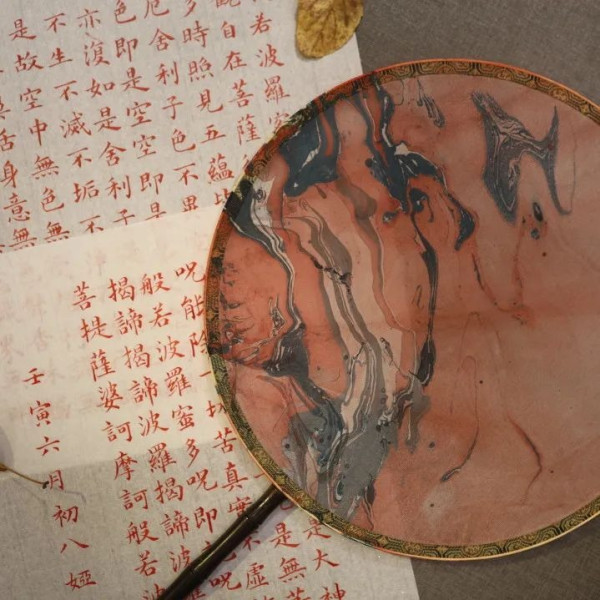 若波羅
自在菩薩
多時照見五蘊皆
厄舍利子色不異
色即是空空即是
亦復如是舍利子
不生不滅不垢不
是故空中無色無
舌身意無
是大神
是無等
呪能除一切苦真實不虛
般若波羅蜜多呪即說呪
揭諦揭諦波羅揭諦波
菩提薩婆訶摩訶般若波
壬寅六月初八婭